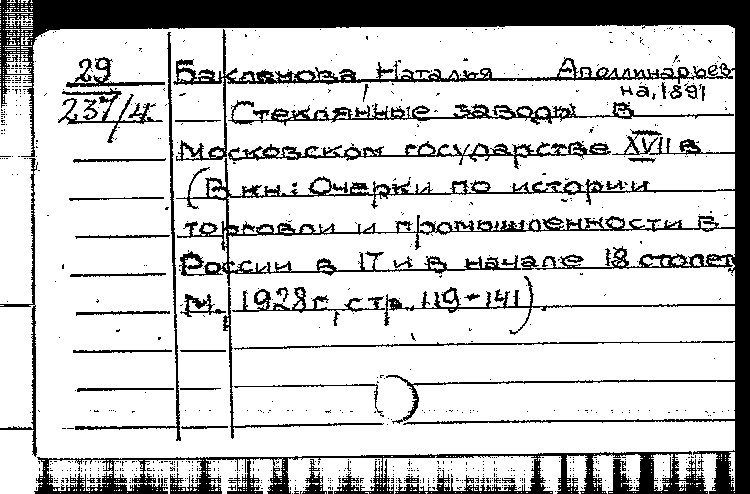 29
237/4.
Бакланова, Наталья Аполлинарьев-
на, 1891
Стеклянные заводы в
Московском государстве XVII в
(В кн.: Очерки по истории
торговли и промышленности в
России в 17 и в начале 18 столет
М., 1928г, стр. 119-141).